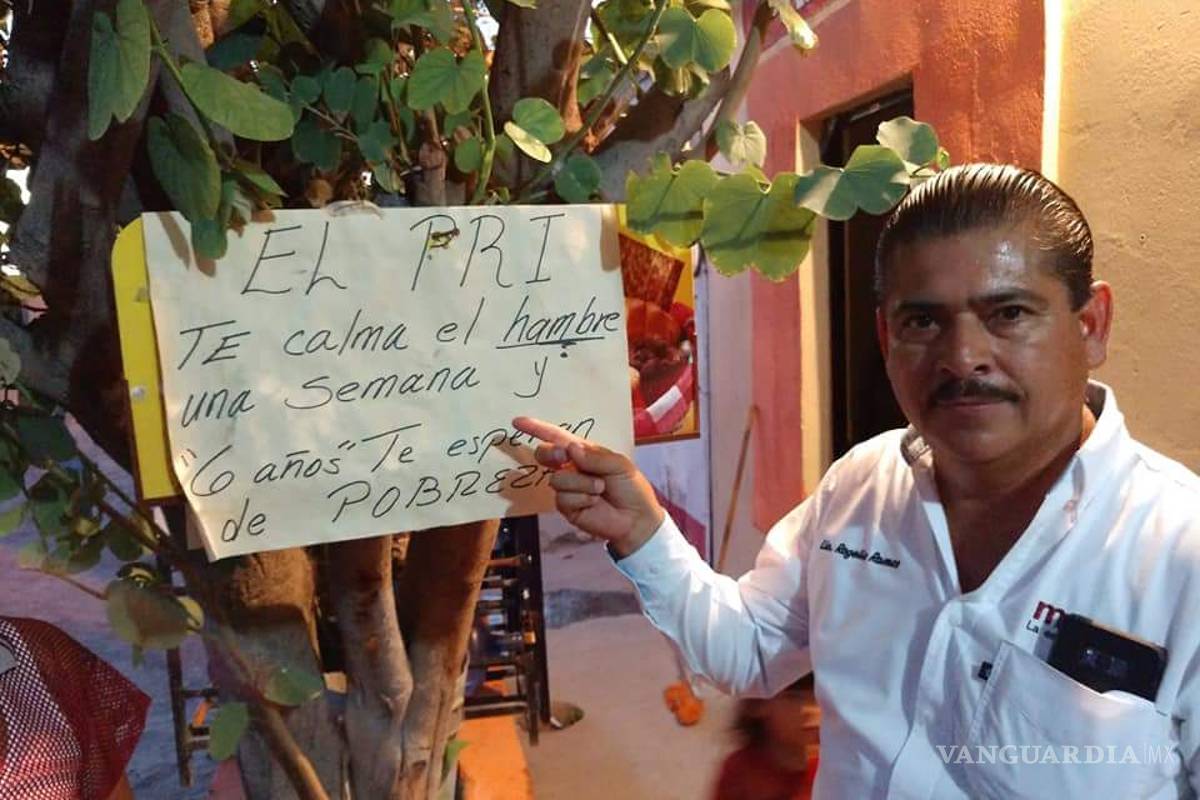 EL PRI
TE calma el hambre
una semana y
"6 años" Te esperan
de POBREZA
Lic. Rogelio Ramos
m
La
VANGUARDIA|MX